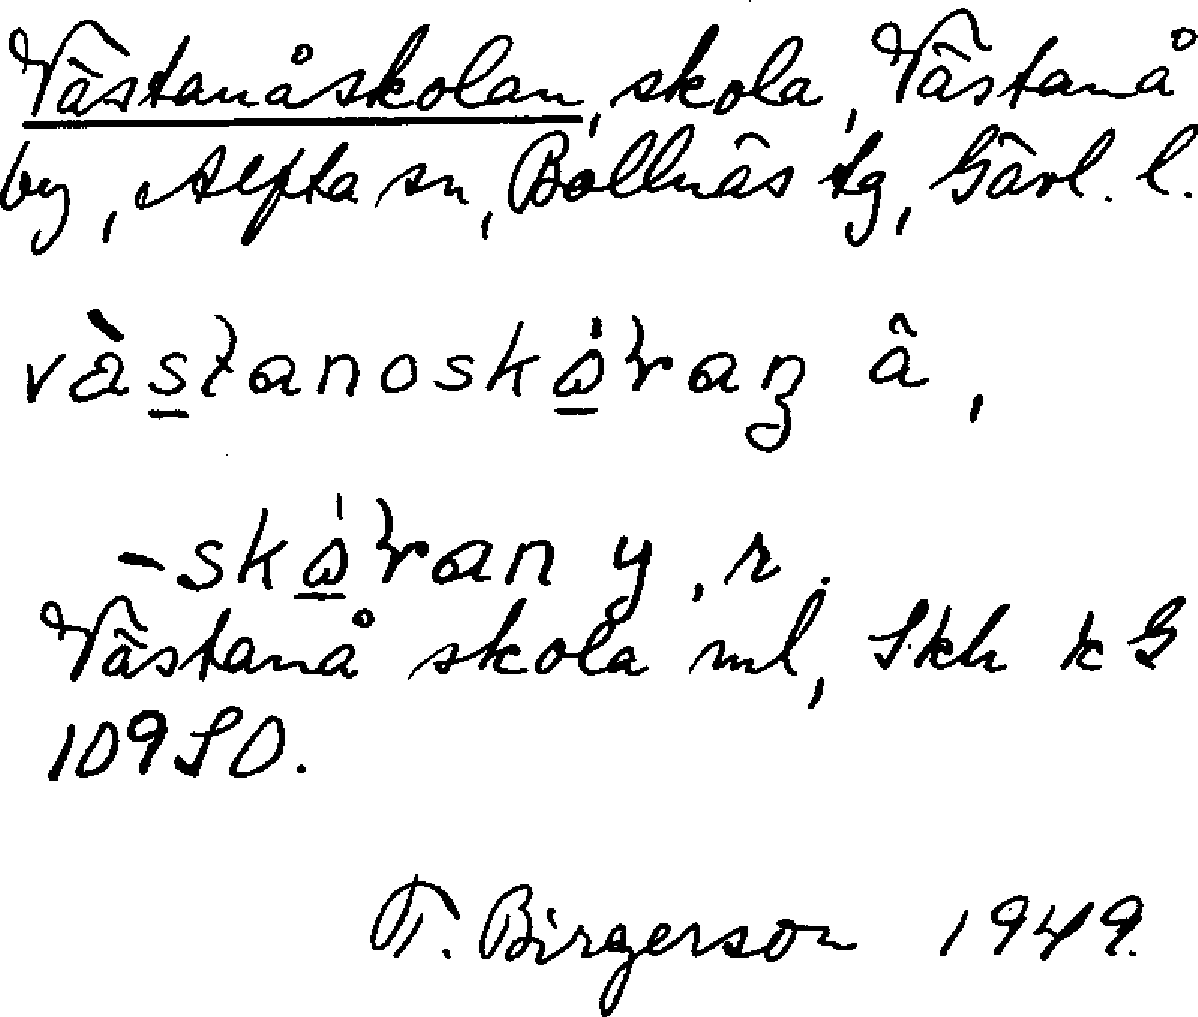 Västanåskolan, skola, Västanå
by, Alfta sn, Bollnäs tg, Gävl. l.
västanoskɷ́ɽaꞑ ä,
-skɷ́ɽan y, r.
Västanå skola ml, Skh k G
109SO.
F. Birgerson 1949.